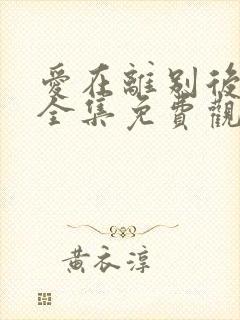 愛在離別後
全集免費觀
黃衣淳